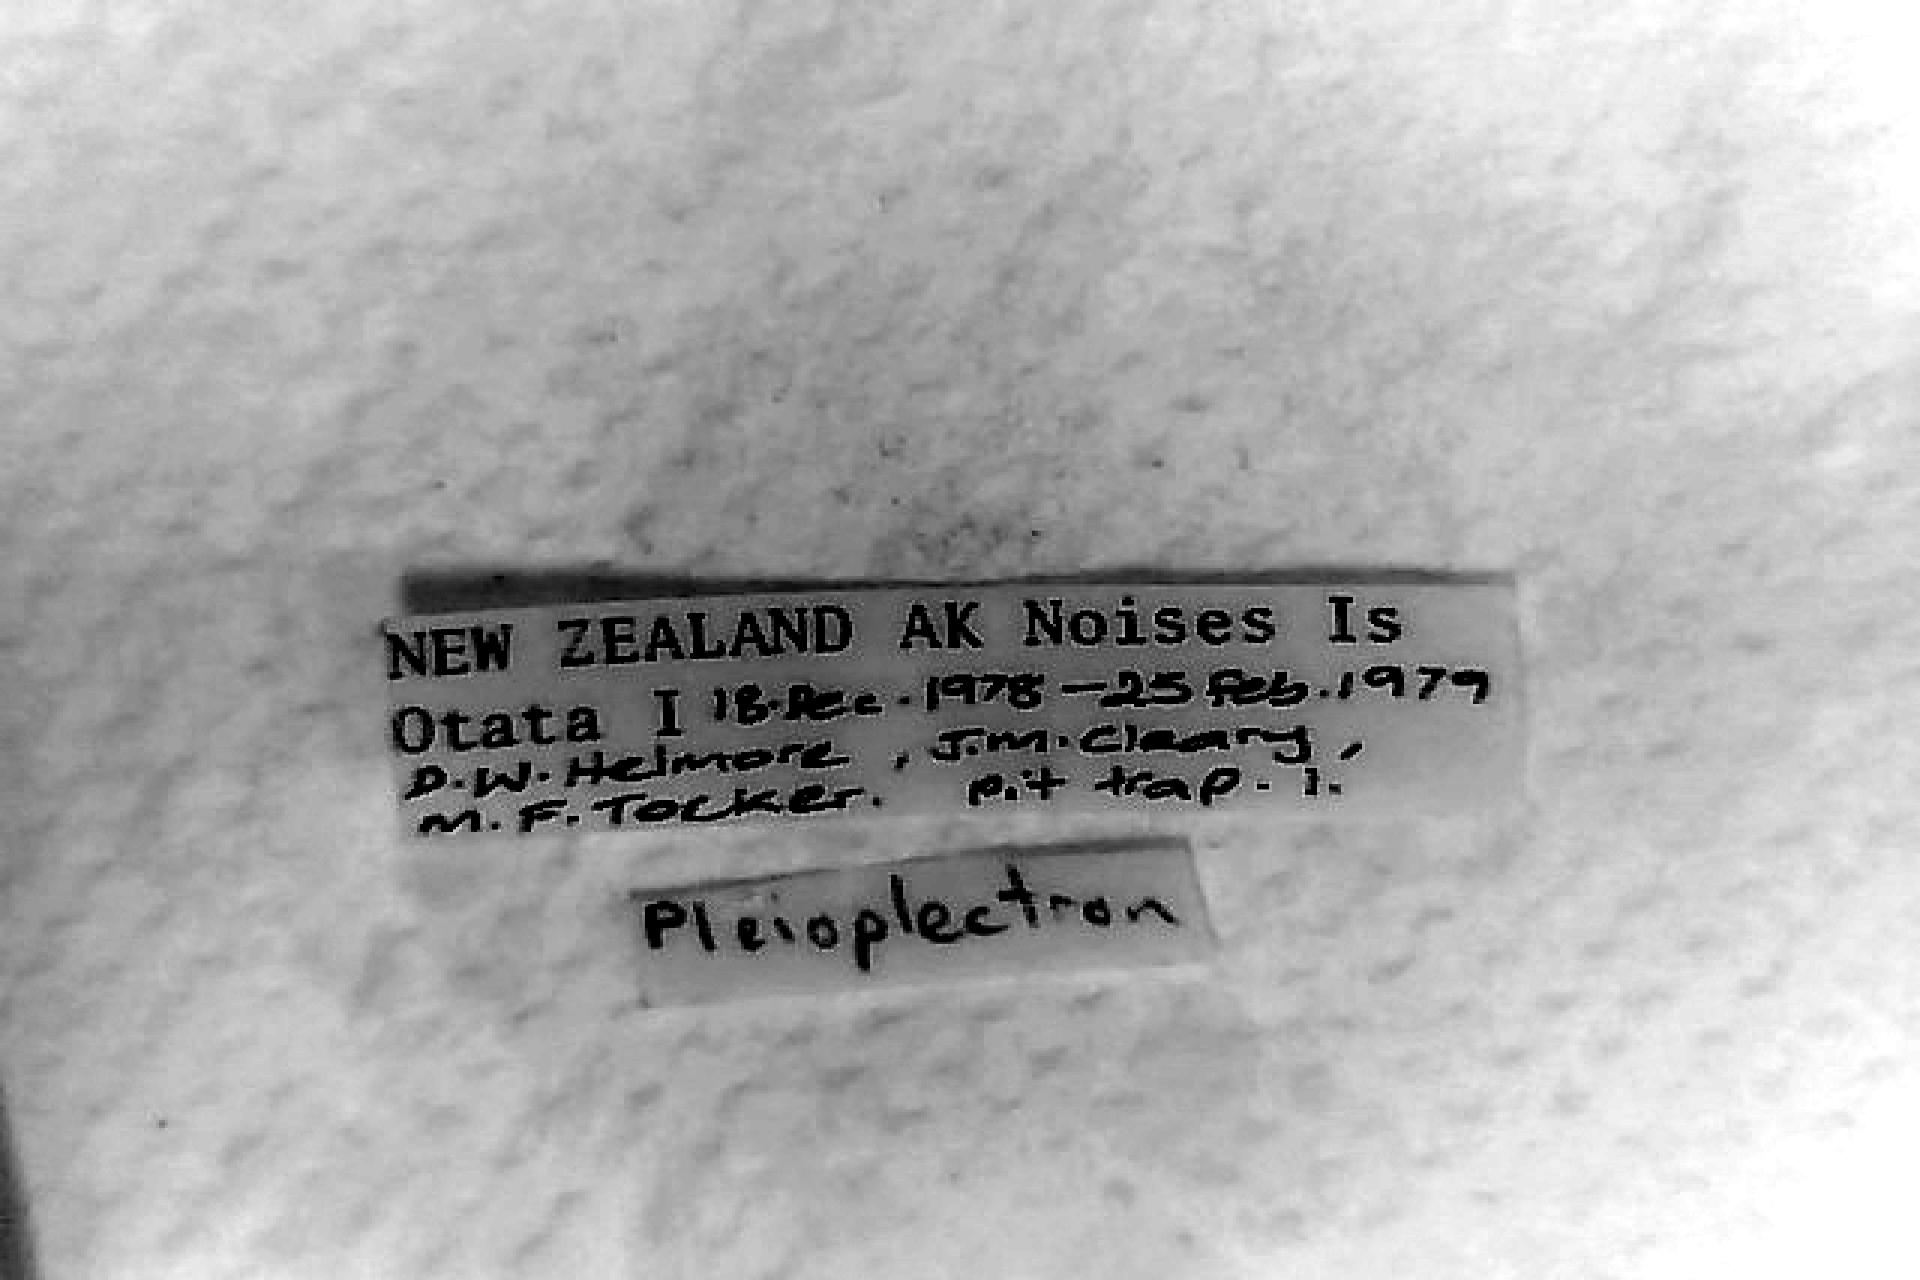 NEW ZEALAND AK Noises Is
Otata I 18.Dec.1978-25 Feb.1979
D.W. Helmore, J.M. Cleary,
M.F. Tocker. pit trap - 1.
Pleioplectron